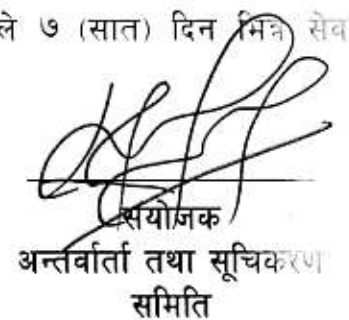 ले ७ (सात) दिन भित्र सेव
संयोजक
अन्तर्वार्ता तथा सूचिकरण
समिति